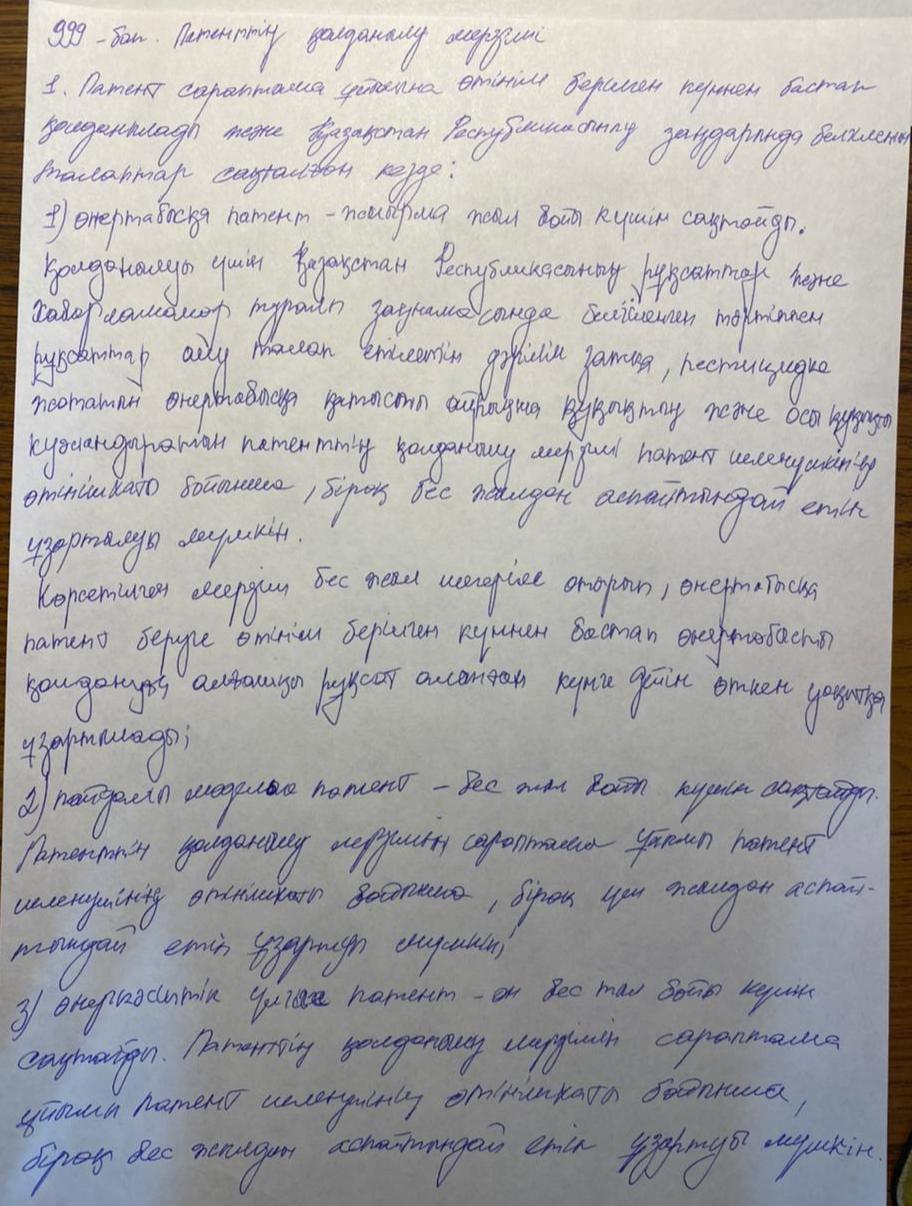 999-бап. Патенттің қолданылу мерзімі
1. Патент сараптама ұйымына өтінім берілген күннен бастап
қолданылады және Қазақстан Республикасының заңдарында белгіленген
талаптар сақталған кезде:
1) өнертабысқа патент - жиырма жыл бойы күшін сақтайды.
Қолданылуы үшін Қазақстан Республикасының рұқсаттар және
хабарламалар туралы заңнамасында белгіленген тәртіппен
рұқсаттар алу талап етілетін дәрілік затқа, пестицидке
жататын өнертабысқа қатысты айрықша құқықтың және осы құқықты
куәландыратын патенттің қолданылу мерзімі патент иеленушінің
өтінішхаты бойынша, бірақ бес жылдан аспайтындай етіп
ұзартылуы мүмкін.
Көрсетілген мерзім бес жыл шегеріле отырып, өнертабысқа
патент беруге өтінім берілген күннен бастап өнертабысты
қолдануға алғашқы рұқсат алынған күнге дейін өткен уақытқа
ұзартылады;
2) пайдалы модельге патент - бес жыл бойы күшін сақтайды.
Патенттің қолданылу мерзімін сараптама ұйымы патент
иеленушінің өтінішхаты бойынша, бірақ үш жылдан аспай-
тындай етіп ұзартуы мүмкін;
3) өнеркәсіптік үлгіге патент - он бес жыл бойы күшін
сақтайды. Патенттің қолданылу мерзімін сараптама
ұйымы патент иеленушінің өтінішхаты бойынша,
бірақ бес жылдан аспайтындай етіп ұзартуы мүмкін.